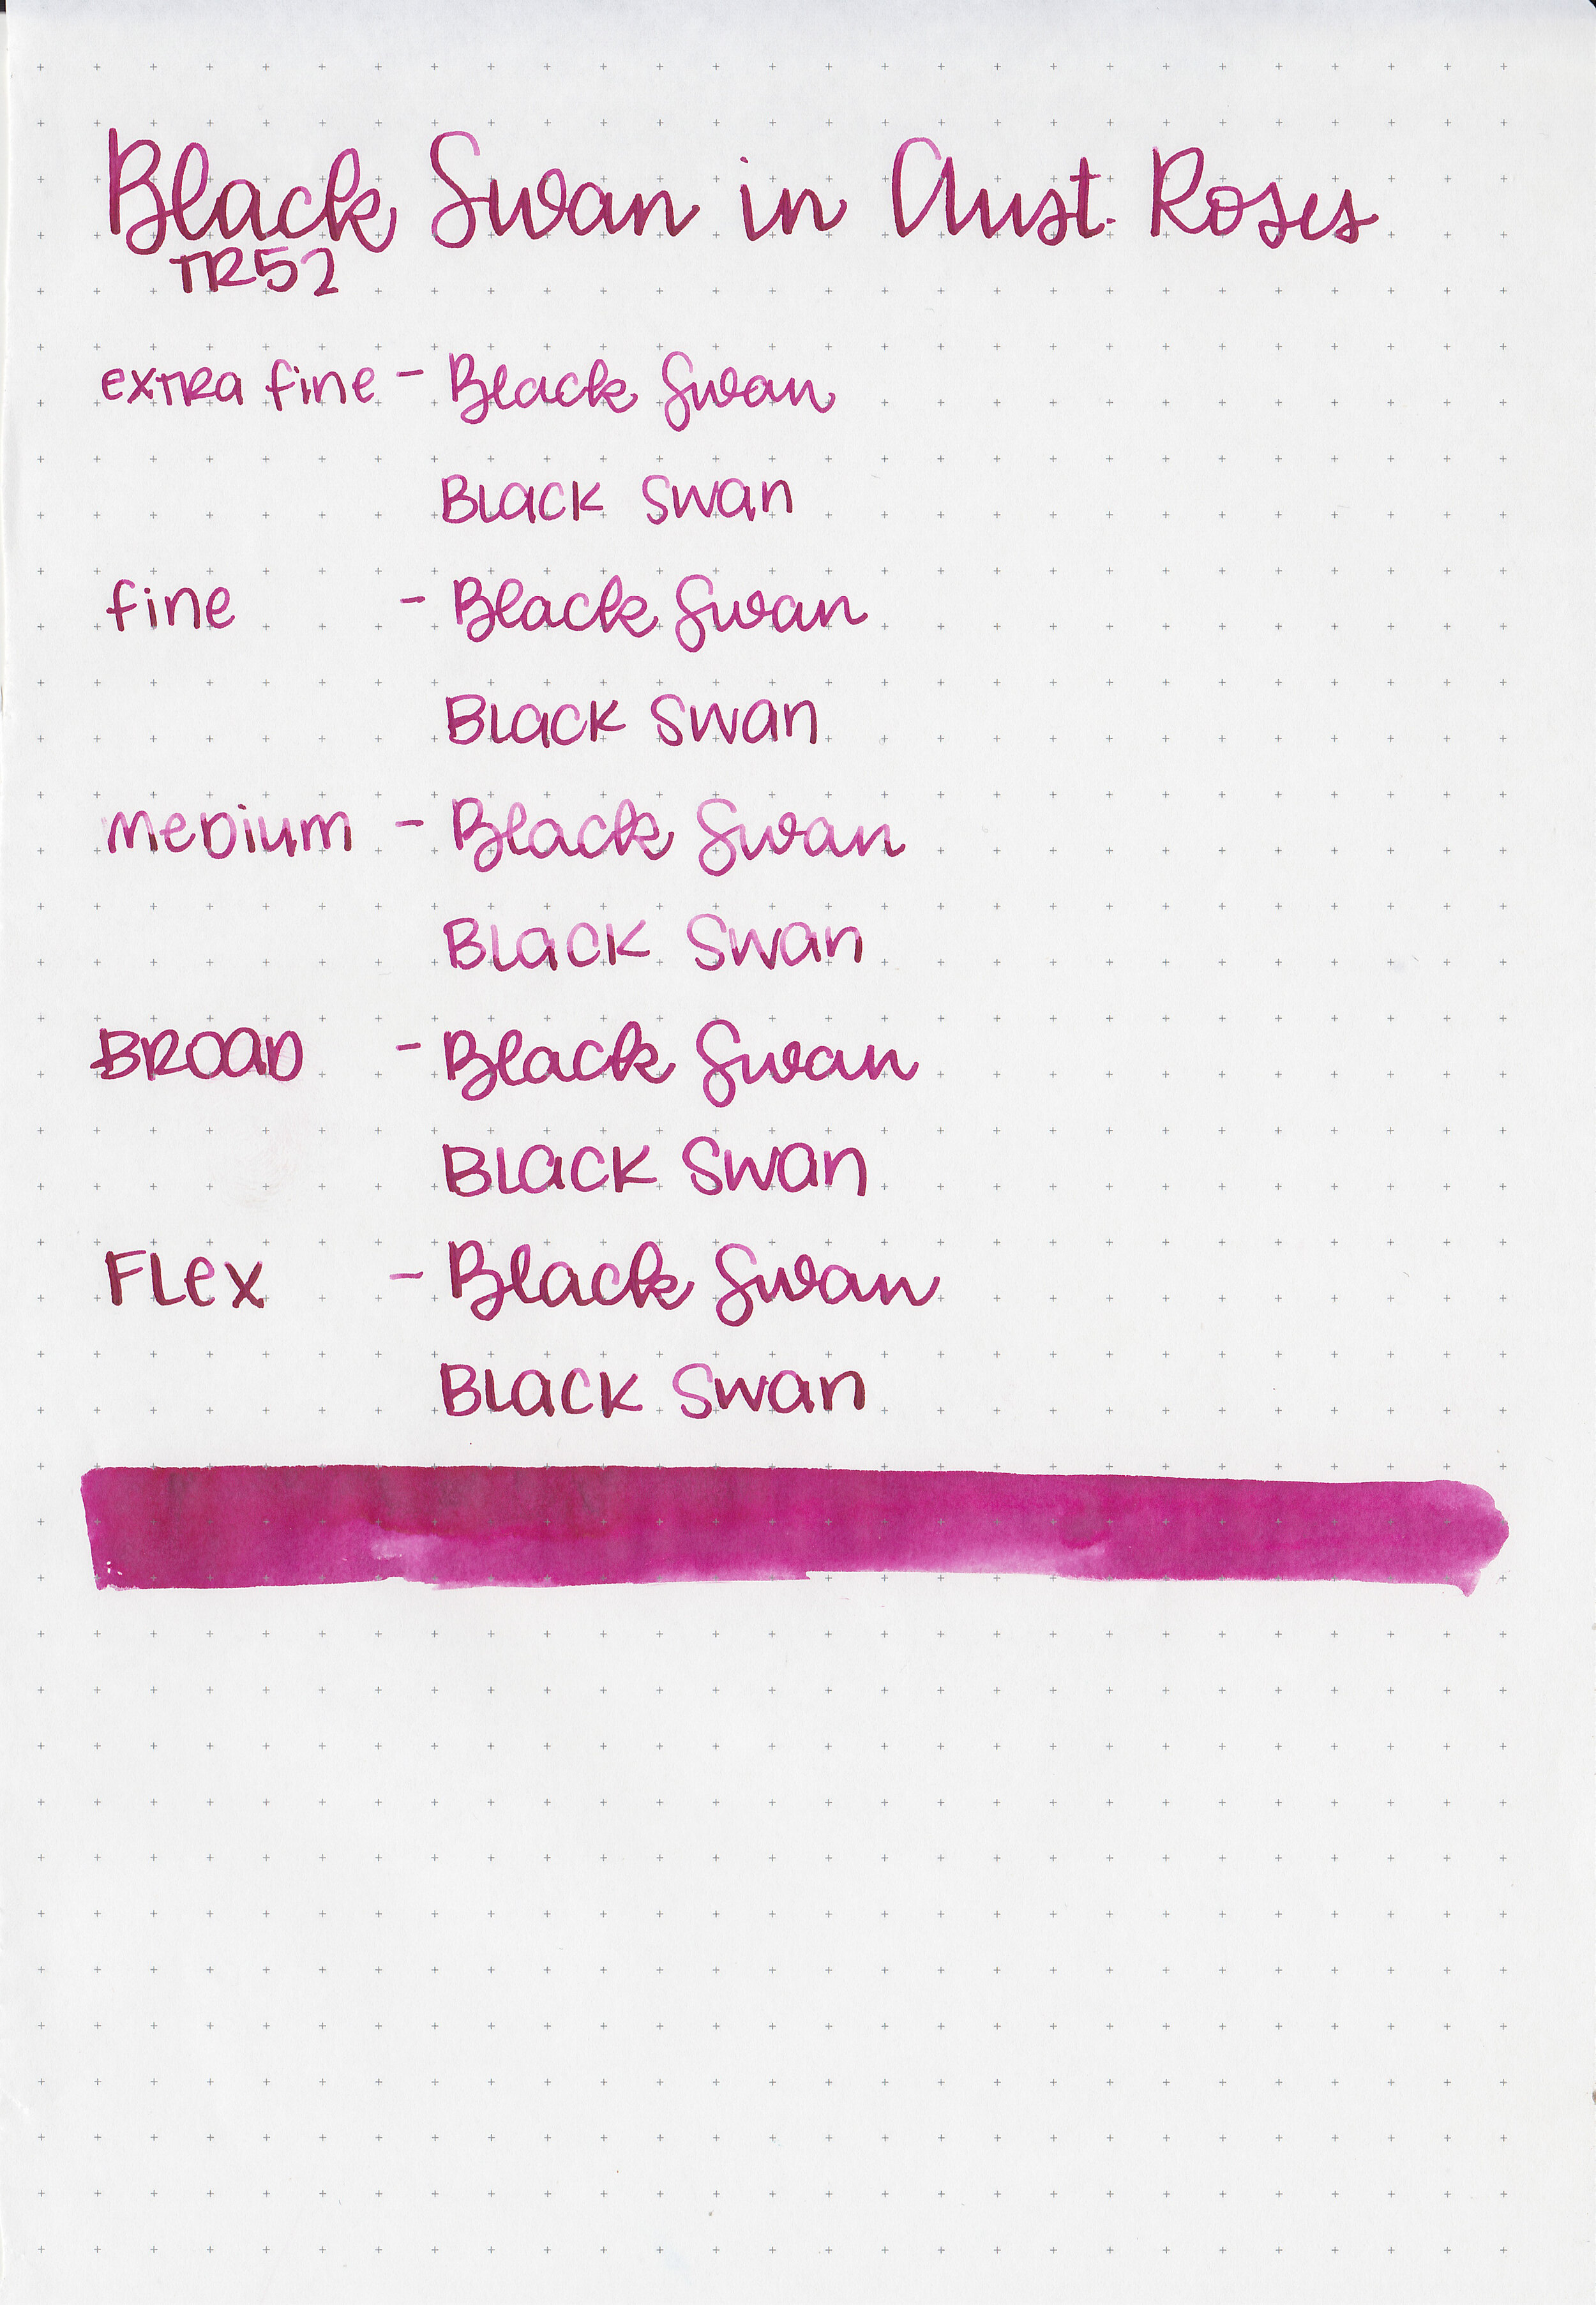 Black Swan in Aust. Roses
TR52
extra fine - Black Swan
Black Swan
fine - Black Swan
Black Swan
Medium - Black Swan
Black Swan
BROAD - Black Swan
Black Swan
Flex - Black Swan
Black Swan